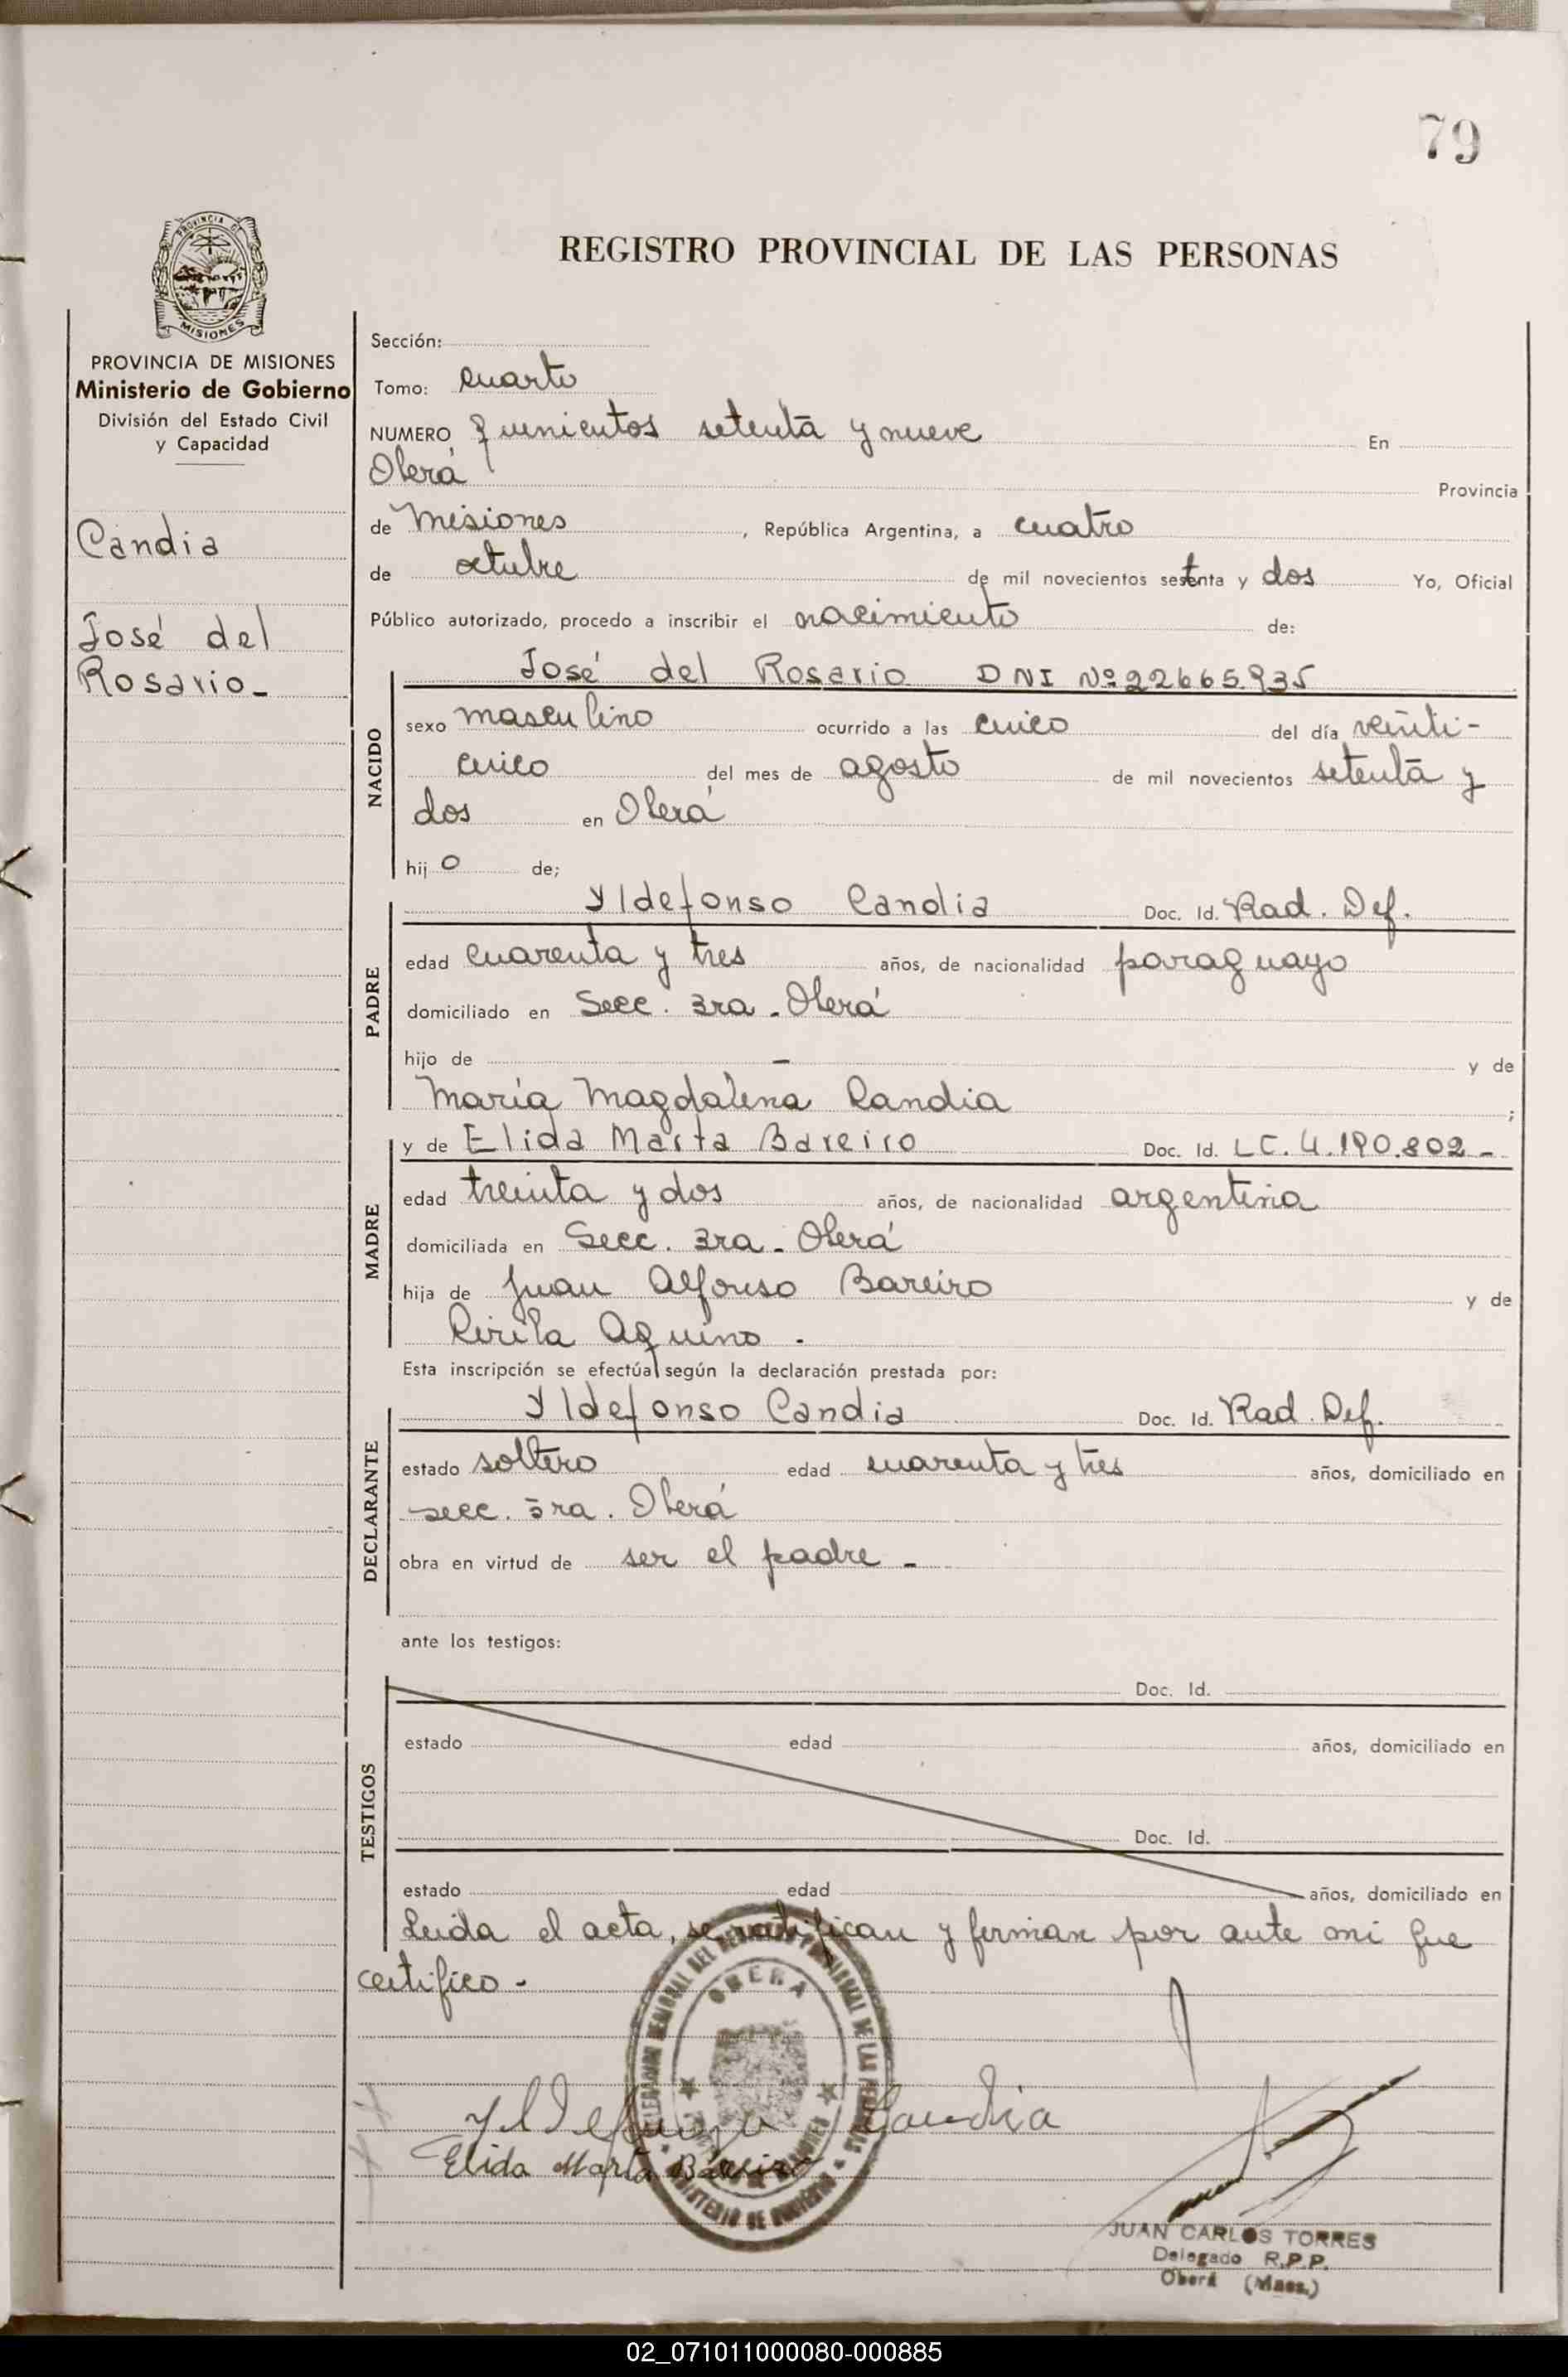 79
PROVINCIA DE
MISIONES
REGISTRO PROVINCIAL DE LAS PERSONAS
PROVINCIA DE MISIONES
Ministerio de Gobierno
División del Estado Civil
y Capacidad
Candia
José del
Rosario-
Sección:
Tomo: cuarto
NUMERO quinientos setenta y nueve En
Oberá Provincia
de Misiones, República Argentina, a cuatro
de octubre de mil novecientos setenta y dos Yo, Oficial
Público autorizado, procedo a inscribir el nacimiento de:
NACIDO
José del Rosario DNI Nº 22665.935
sexo masculino ocurrido a las cinco del día veinti-
cinco del mes de agosto de mil novecientos setenta y
dos en Oberá
hijo de;
PADRE
Yldefonso Candia Doc. Id. Rad. Def.
edad cuarenta y tres años, de nacionalidad paraguayo
domiciliado en Secc. 3ra - Oberá
hijo de - y de
María Magdalena Candia ;
MADRE
y de Elida Marta Bareiro Doc. Id. LC. 4.190.802-
edad treinta y dos años, de nacionalidad argentina
domiciliada en Secc. 3ra - Oberá
hija de Juan Alfonso Bareiro y de
Aquino .
Esta inscripción se efectúa según la declaración prestada por:
DECLARANTE
Yldefonso Candia Doc. Id. Rad. Def.
estado soltero edad cuarenta y tres años, domiciliado en
secc. 3ra. Oberá
obra en virtud de ser el padre -
ante los testigos:
TESTIGOS
Doc. Id.
estado edad años, domiciliado en
Doc. Id.
estado edad años, domiciliado en
Leida el acta, se ratifican y firman por ante mi que
certifico -
OBERA
Yldefonso Candia
Elida Marta Bareiro
JUAN CARLOS TORRES
Delegado R.P.P.
Oberá (Mnes.)
02_071011000080-000885